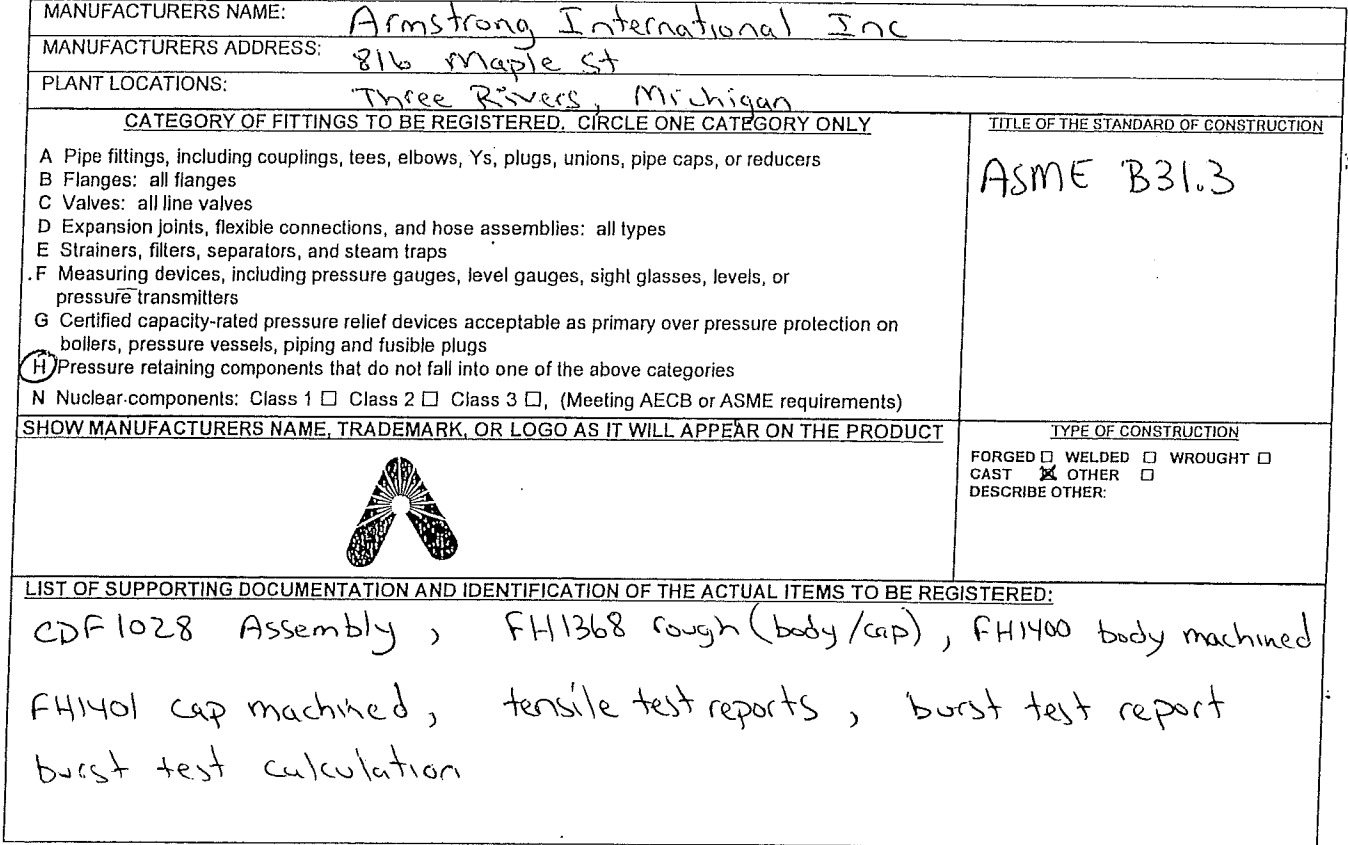 MANUFACTURERS NAME: Armstrong International Inc
MANUFACTURERS ADDRESS: 816 Maple St
PLANT LOCATIONS: Three Rivers, Michigan
CATEGORY OF FITTINGS TO BE REGISTERED. CIRCLE ONE CATEGORY ONLY
A Pipe fittings, including couplings, tees, elbows, Ys, plugs, unions, pipe caps, or reducers
B Flanges: all flanges
C Valves: all line valves
D Expansion joints, flexible connections, and hose assemblies: all types
E Strainers, filters, separators, and steam traps
F Measuring devices, including pressure gauges, level gauges, sight glasses, levels, or
pressure transmitters
G Certified capacity-rated pressure relief devices acceptable as primary over pressure protection on
boilers, pressure vessels, piping and fusible plugs
H Pressure retaining components that do not fall into one of the above categories
N Nuclear components: Class 1 ☐ Class 2 ☐ Class 3 ☐, (Meeting AECB or ASME requirements)
TITLE OF THE STANDARD OF CONSTRUCTION
ASME B31.3
SHOW MANUFACTURERS NAME, TRADEMARK, OR LOGO AS IT WILL APPEAR ON THE PRODUCT
TYPE OF CONSTRUCTION
FORGED ☐ WELDED ☐ WROUGHT ☐
CAST ☒ OTHER ☐
DESCRIBE OTHER:
LIST OF SUPPORTING DOCUMENTATION AND IDENTIFICATION OF THE ACTUAL ITEMS TO BE REGISTERED:
CDF1028 Assembly, FH1368 rough (body/cap), FH1400 body machined
FH1401 cap machined, tensile test reports, burst test report
burst test calculation